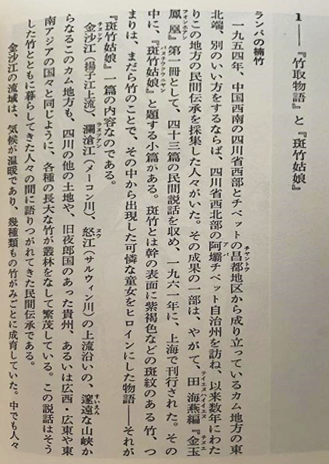 1――『竹取物語』と『斑竹姑娘』
ランパの楠竹
一九五四年、中国西南の四川省西部とチベットの昌都地区から成り立っているカム地方の東
チャムド
北端、別のいい方をするならば、四川省西北部の阿壩チベット自治州を訪ね、以来数年にわた
アバ
りこの地方の民間伝承を採集した人々がいた。その成果の一部は、やがて、田海燕編『金玉
鳳凰』第一冊として、四十三篇の民間説話を収め、一九六一年に、上海で刊行された。その
中に、『斑竹姑娘』と題する小篇がある。斑竹とは幹の表面に紫褐色などの斑紋のある竹、つ
まりは、まだら竹のことで、その中から出現した可憐な童女をヒロインにした物語――それが
『斑竹姑娘』一篇の内容なのである。
金沙江（揚子江上流）、瀾滄江（メーコン川）、怒江（サルウィン川）の上流沿いの、遼遠な山峡か
らなるこのカム地方も、四川の他の土地や、旧夜郎国のあった貴州、あるいは広西・広東や東
南アジアの国々と同じように、各種の長大な竹が叢林をなして繁茂している。この説話はそう
した竹とともに暮らしてきた人々の間に語りつがれてきた民間伝承である。
金沙江の流域は、気候が温暖であり、幾種類もの竹がみごとに成育していた。中でも人々